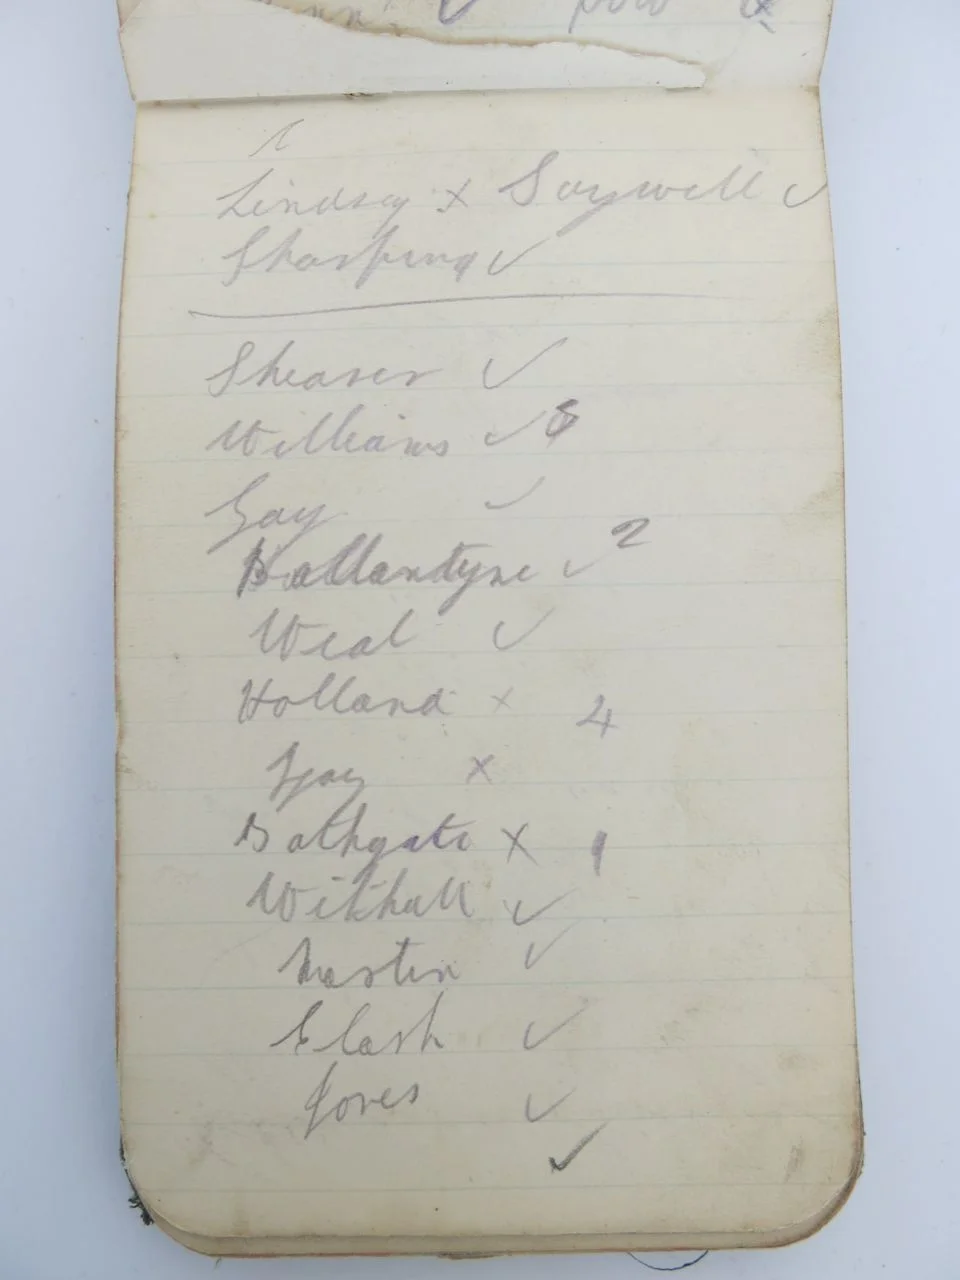 Lindsay x Saywell ✓
Sharping ✓
Shearer ✓
Williams ✓
Gay ✓
Ballantyne ✓ 2
Weal ✓
Holland x 4
x
Bathgate x 1
Withall ✓
Martin ✓
Clark ✓
Jones ✓
✓